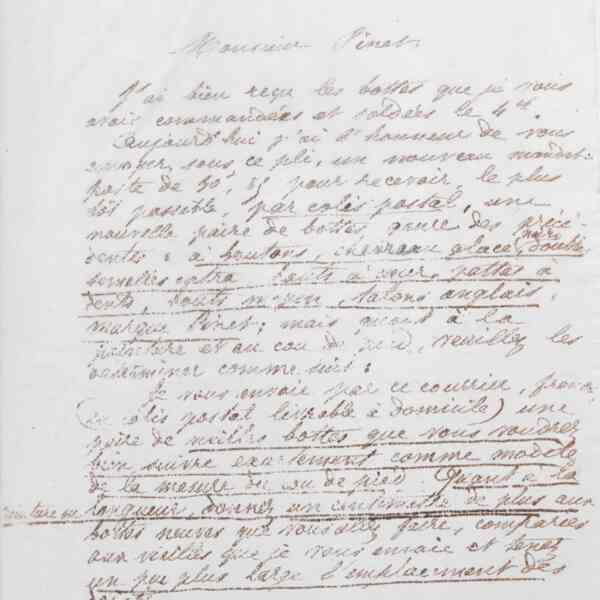 Monsieur Pinet
J'ai bien reçu les bottes que je vous
avais commandées et soldées le 4
Aujourd'hui j'ai l'honneur de vous
envoyer sous ce pli, un nouveau mandat-
poste de 30f, pour recevoir, le plus
tôt possible, par colis postal, une
nouvelle paire de bottes genre des précé-
dentes : à boutons, chevreau glacé, doubles
semelles extra bouts à pattes à
dents, bouts talons anglais,
marque Pinet; mais quant à la
pointure et au cou de pied, veuillez les
déterminer comme suit :
Je vous envoie par ce courrier,
(colis postal livrable à domicile) une
paire de vieilles bottes que vous voudrez
bien suivre exactement comme modèle
de la mesure du cou de pied. Quant à la
pointure ou longueur, donnez un centimètre de plus aux
bottes neuves que vous allez faire, comparées
aux vieilles que je vous envoie et tenez
un peu plus large l'emplacement des